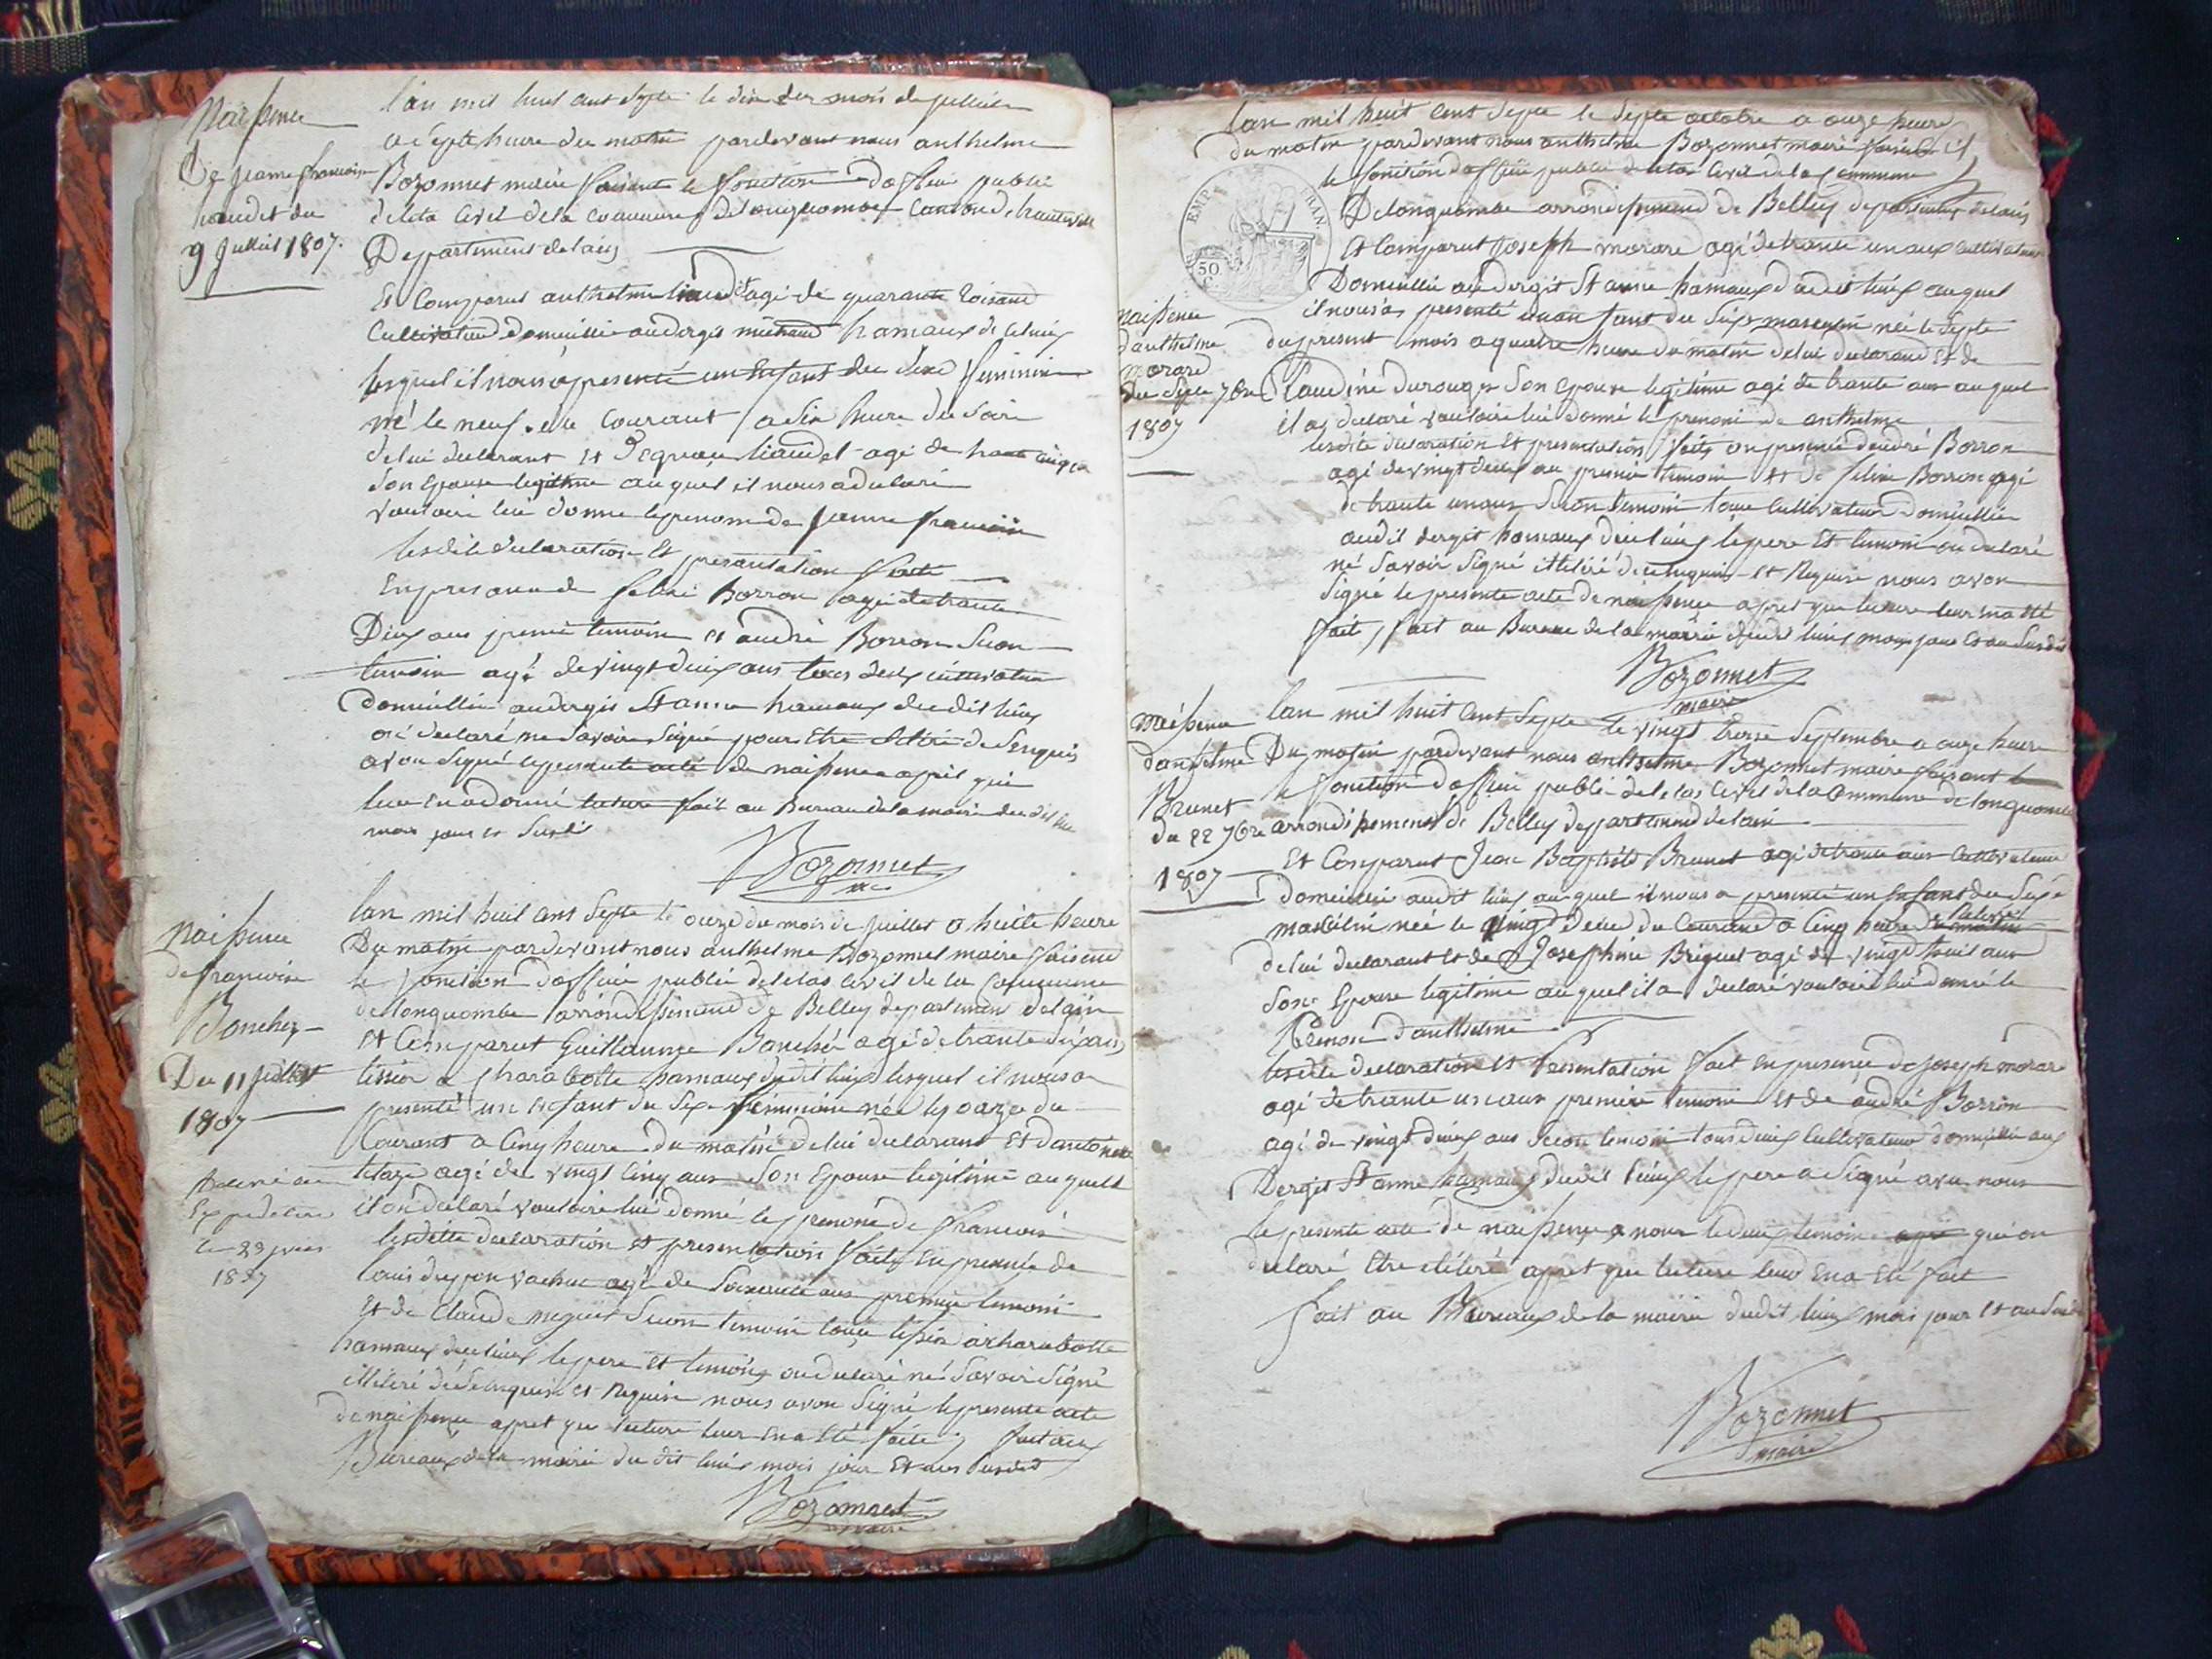 Naissence
De jeanne francoise
liaudet du
9 Juillet 1807.
l'an mil huit cent septe le dix du mois de juillet
a septe heure du matin pardevant nous anthelme
Bozonnet maire faisant le fonction dofficie publie
deleta Civil de la Commune de longuombe Canton de hauteville
Departement delain
Et Comparut anthelme liaudet agé de quarante
Cultivateur domicillié au dergit michaud hamaux de
lesquel il nous a presenté un Enfant du sexe feminin
né le neuf du Courant a dix heure du soir
de lui declarant et liaudet agé de trante cinq an
son Epouse legitime auquel il nous a declaré
vouloir lui donne le prenom de Janne francoise
lesdite declaration Et presantation faite
En presance de felixe Borron agé de trante
Deux ans premié temoin et andré Borron Secon
temoin agé de vingt deux ans tous deux cultivateur
domicillié au dergit St anne hamaux du dit lieu
on declaré ne savoir signé pour Etre
avon signé le presente acte de naissence apret que
leur en a donné lecture fait au Bureau de la mairie du dit lieu
mois jour et
Bozonnet
Naissence
de francoise
Bonchez
Du 11 Juillet
1807
Expedition
le 23
18
lan mil huit Cens Septe le onze du mois de Juillet a huite heure
Du matin pardevant nous anthelme Bozonnet maire faisent
le fonction dofficie publie deletas Civil de la Commune
de longuombe arrondissemend de Belley departement delain
Et Comparut Guillaume Bonché agé de trante
tissié a Charabotte hamaux dudit lieu lesquel il nous a
presenté un enfant du sexe feminin née le onze du
Courant a Cinq heure du matin de lui declarant Et dantoinette
agé de vingt cinq ans son Epouse legitime auquelt
il on declaré vouloire lui donné le prenom de francoise
lesdite declaration et presentation faite En presence de
louis agé de Soixente ans premié temoin
Et de Claude Secon temoin a charabotte
hamaux lepere et temoin on declaré né savoir signé
illiteré de et Requise nous avon signé lepresente acte
de naissence apret que lecture leur en a Eté faite fait au
Bureaux de la mairie du dit lieu mois jour Et ans susdit
Bozonnet
maire
lan mil huit Cent Septe le septe octobre a onze heure
du matin pardevant nous anthelme Bozonnet maire
le fonction dofficie publie deletas Civil de la Commune
EMP FRAN
50
Delonguombe arrondissemend de Belley departement delain
Et Comparut Joseph morard agé de trante un ans Cultivateur
Domicillié au dergit St anne hamaux dudit lieu auquel
il nous a presenté un an fant du sexe masculin née le septe
du present mois a quatre heure du matin de lui declarand et de
naissence
danthelme
morard
du Septe 7bre
1807
Claudine Durouger son Epouse legitime agé de trante ans auquel
il as declaré vouloire lui donné le prenom de anthelme
lesdite declaration Et presentation faite en presence dandré Borron
agé de vingt deux an premié temoin et de felixe Borron agé
de trante un ans Secon temoin tous Cultivateur domicillié
audit dergit hamaux du lieu lepere Et temoin on declaré
né savoir signé illiteré de et Requise nous avon
Signé le presente acte de naissence apret que lecture leur en a eté
fait, fait au Bureau de la mairie dudit lieu mois jour et an susdit
Bozonnet
maire
naissence
danthelme
Brunet
du 22 7bre
1807
lan mil huit Cent Septe le vingt troise Septembre a onze heure
Du matin pardevant nous anthelme Bozonnet maire faisant le
le fonction dofficie publie deletas Civil de la Commune de longuombe
arrondissement de Belley departemend delain
Et Comparut Jean Baptiste Brunet agé de trante ans Cultivateur
domicillié audit lieu auquel il nous a presenté un Enfant du Sexe
masculin née le vingt deux du Courand a Cinq heure
de lui declarant et de Josephine Briguet agé de vingt huit ans
son Epouse legitime auquel il a declaré vouloir lui donné le
Prenom danthelme
lesdite declaration et Presentation fait en presence de Joseph morard
agé de trante un ans premié temoin et de andré Borron
agé de vingt deux ans Secon temoin tous deux Cultivateur domicillié au
Dergit St anne hamaux dudit lieux lepere a Signé avec nous
le presente acte de naissence a nous le deux temoin agé qui on
declaré Etre illiteré apret que lecture leur En a Eté fait
fait au Bureaux de la mairie dudit lieu mois jour et an susdit
Bozonnet
maire